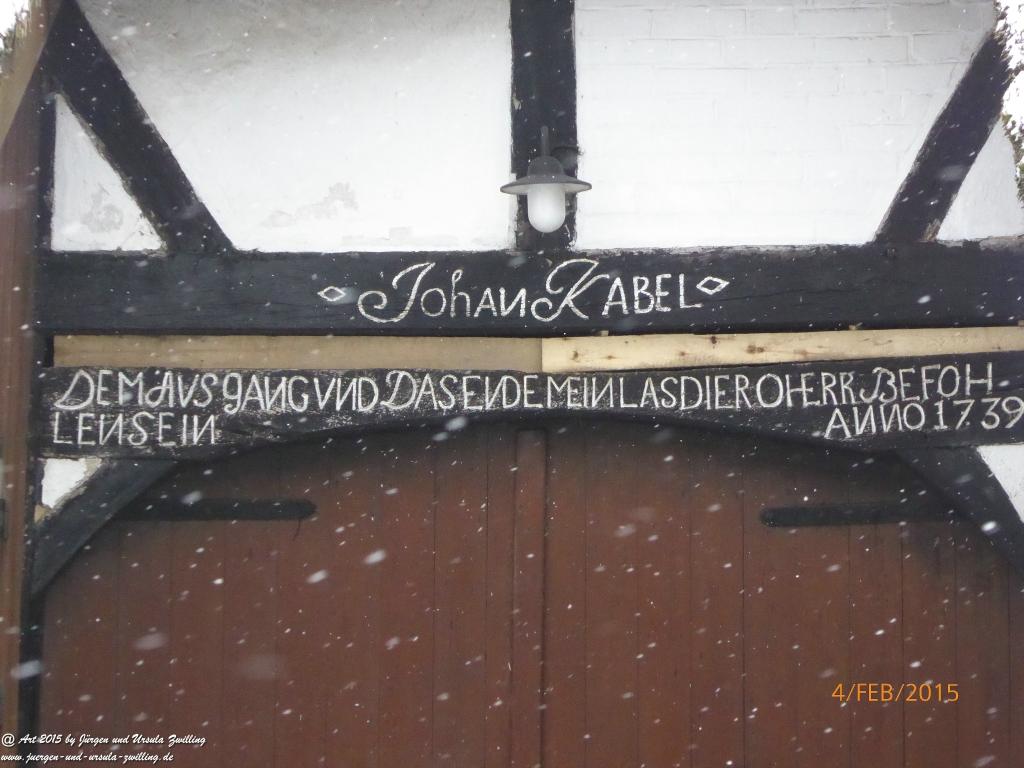 Johan Kabel
DEM AVSGANG VND DAS ENDE MEIN LAS DIER O HERR BEFOH
LEN SEIN
ANNO 1739
4/FEB/2015
@ Art 2015 by Jürgen und Ursula Zwilling
www.juergen-und-ursula-zwilling.de